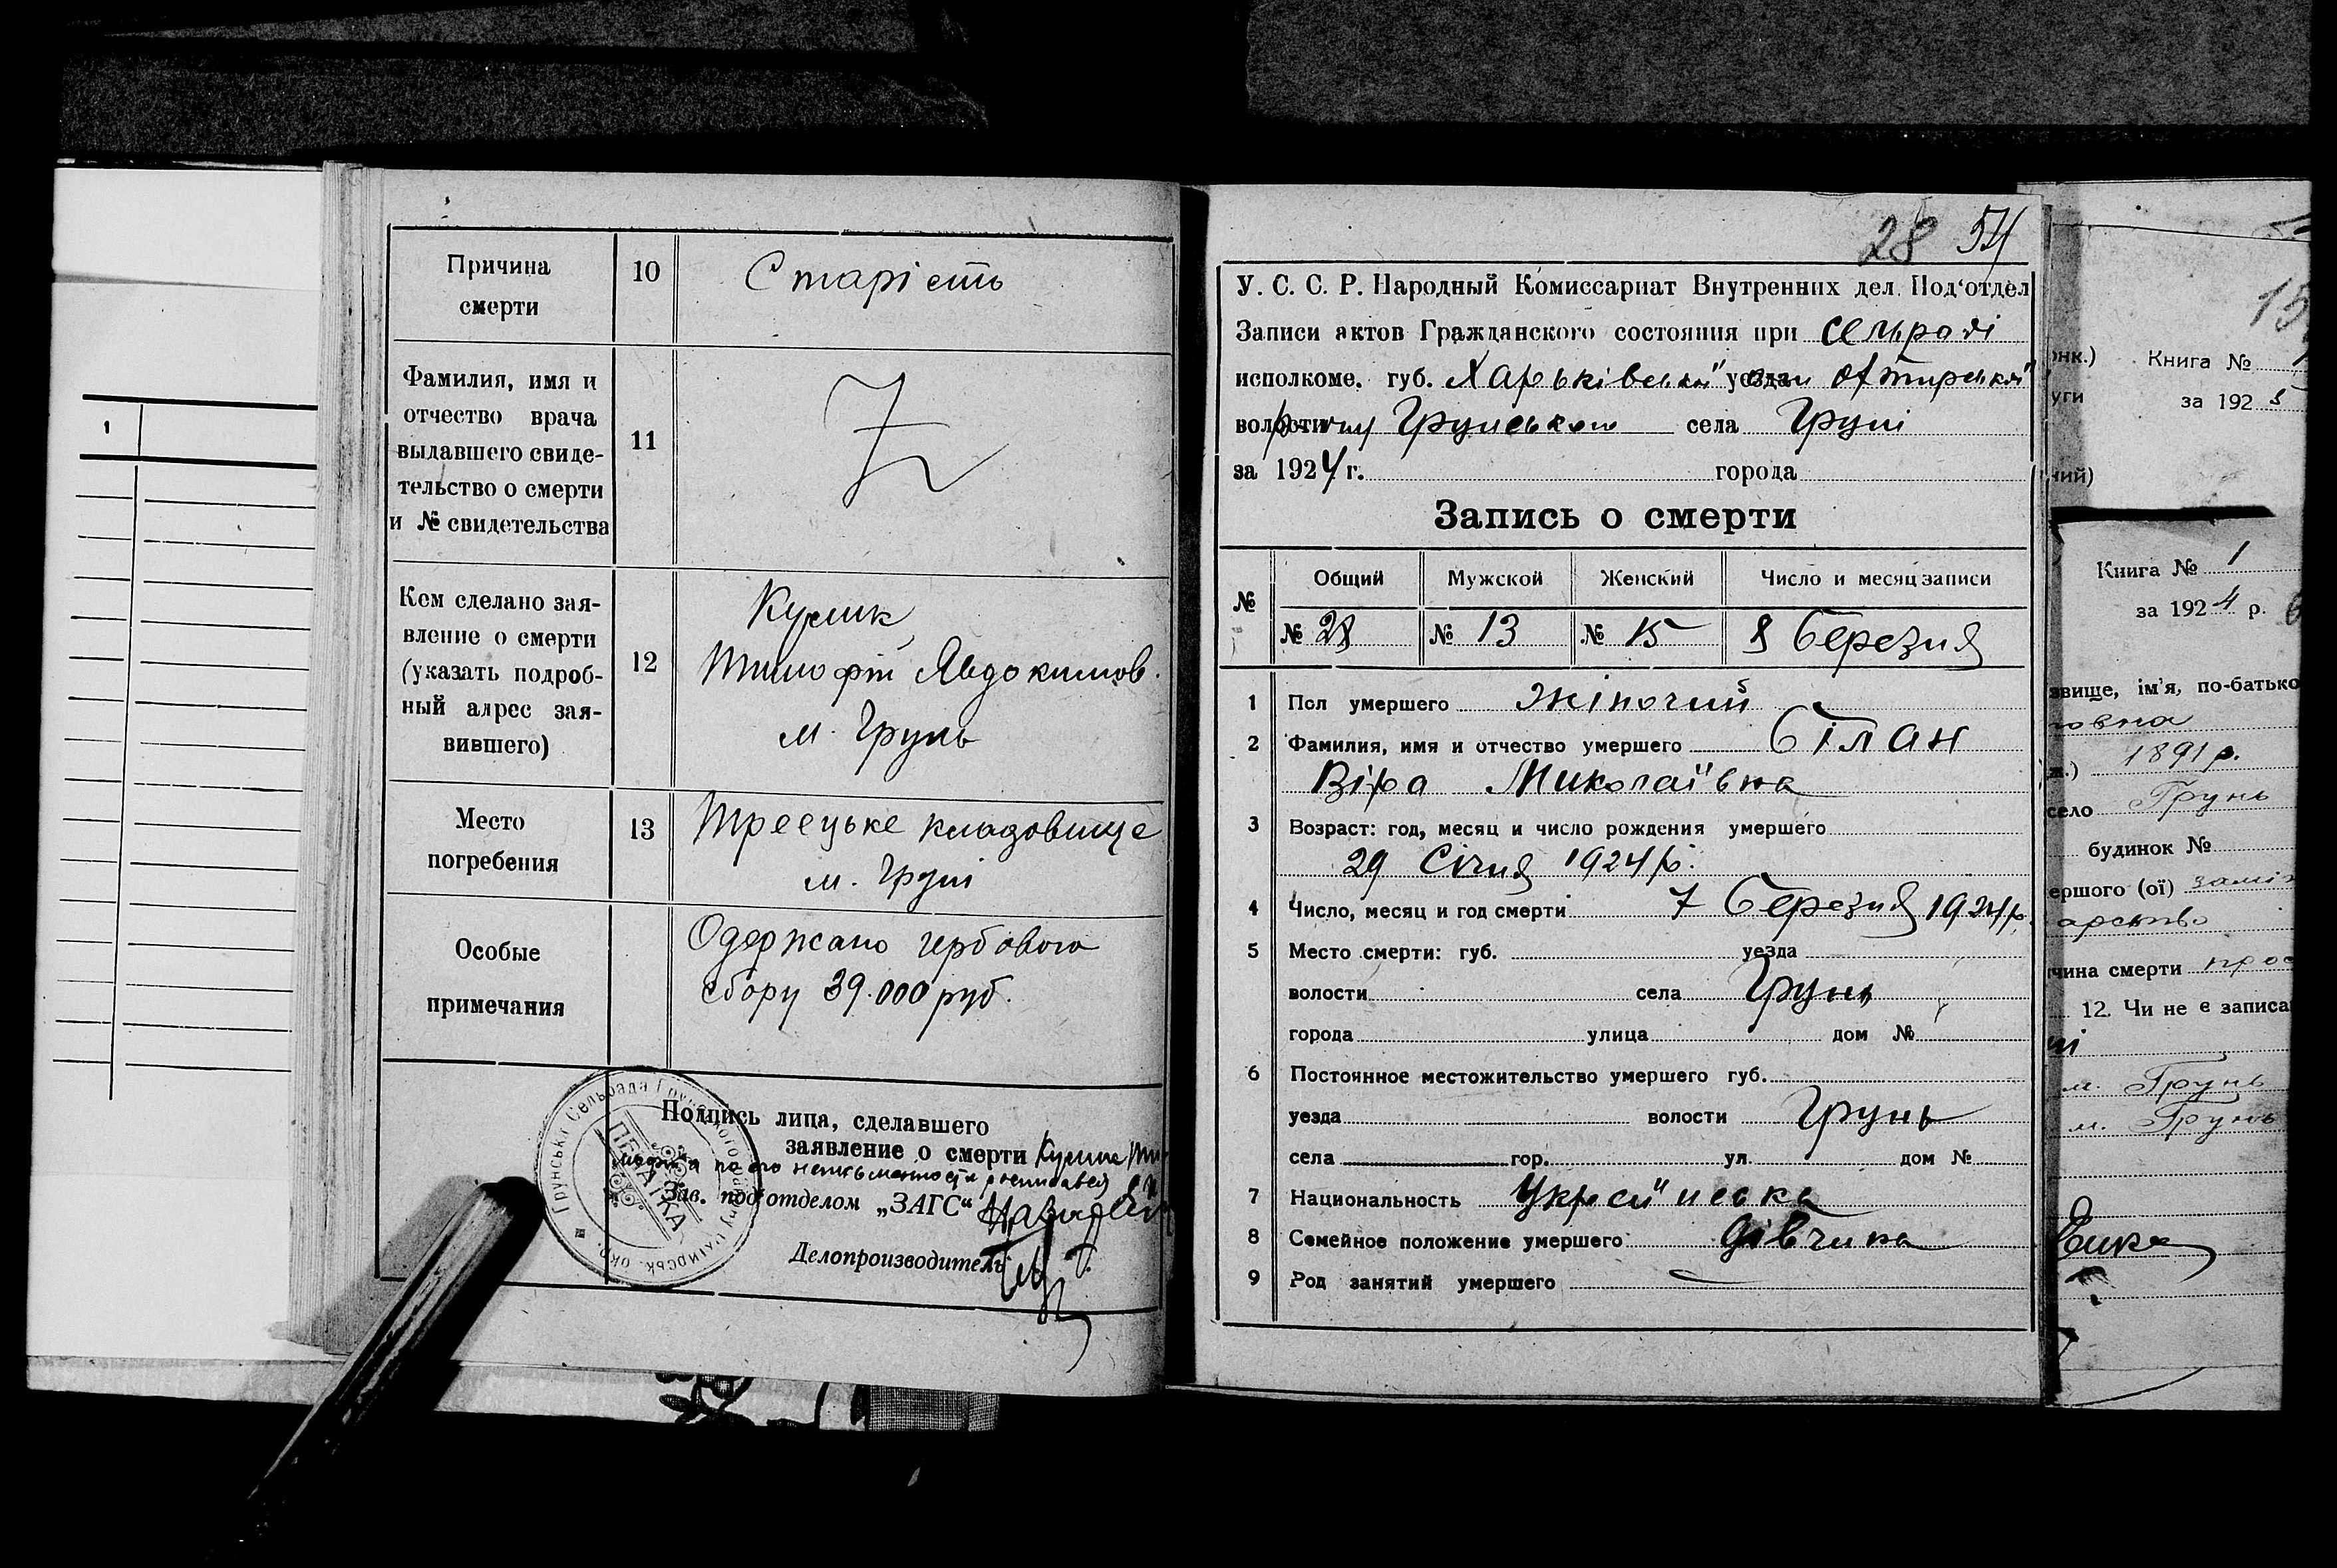 1
Причина
смерти
10
Старість
Фамилия, имя и
отчество врача
выдавшего свиде-
тельство о смерти
и № свидетельства
11
Кем сделано зая-
вление о смерти
(указать подроб-
ный адрес зая-
вившего)
12
Кулик
Тимофій Явдокимов.
м. Грунь
Место
погребения
13
Троецьке кладовище
м. Груні
Особые
примечания
Одержано гербового
сбору 39.000 руб.
Подпись лица, сделавшего
заявление о смерти Кулик
Зав. под'отделом „ЗАГС“
Делопроизводитель
Грунська Сельрада
ПЕЧАТКА
28 54
У. С. С. Р. Народный Комиссариат Внутренних дел. Под'отдел
Записи актов Гражданского состояния при сельраді
исполкоме. губ. Харьківської уезда Охтирської
волости Грунського села Груні
за 1924 г. города
Запись о смерти
№
Общий Мужской Женский Число и месяц записи
№ 28 № 13 № 15 8 березня
1 Пол умершего жіночий
2 Фамилия, имя и отчество умершего Білан
Віра Миколаївна
3 Возраст: год, месяц и число рождения умершего
29 Січня 1924 р.
4 Число, месяц и год смерти 7 березня 1924 р.
5 Место смерти: губ. уезда
волости села Грунь
города улица дом №
6 Постоянное местожительство умершего губ.
уезда волости Грунь
села гор. ул. дом №
7 Национальность Українська
8 Семейное положение умершего дівчина
9 Род занятий умершего
Книга №
за 1925
Книга № 1
за 1924 р.
звище, ім'я, по-батько
1891 р.
село Грунь
будинок №
ершого (ої) заміж
чина смерти
12. Чи не є записа
м. Грунь
м. Грунь